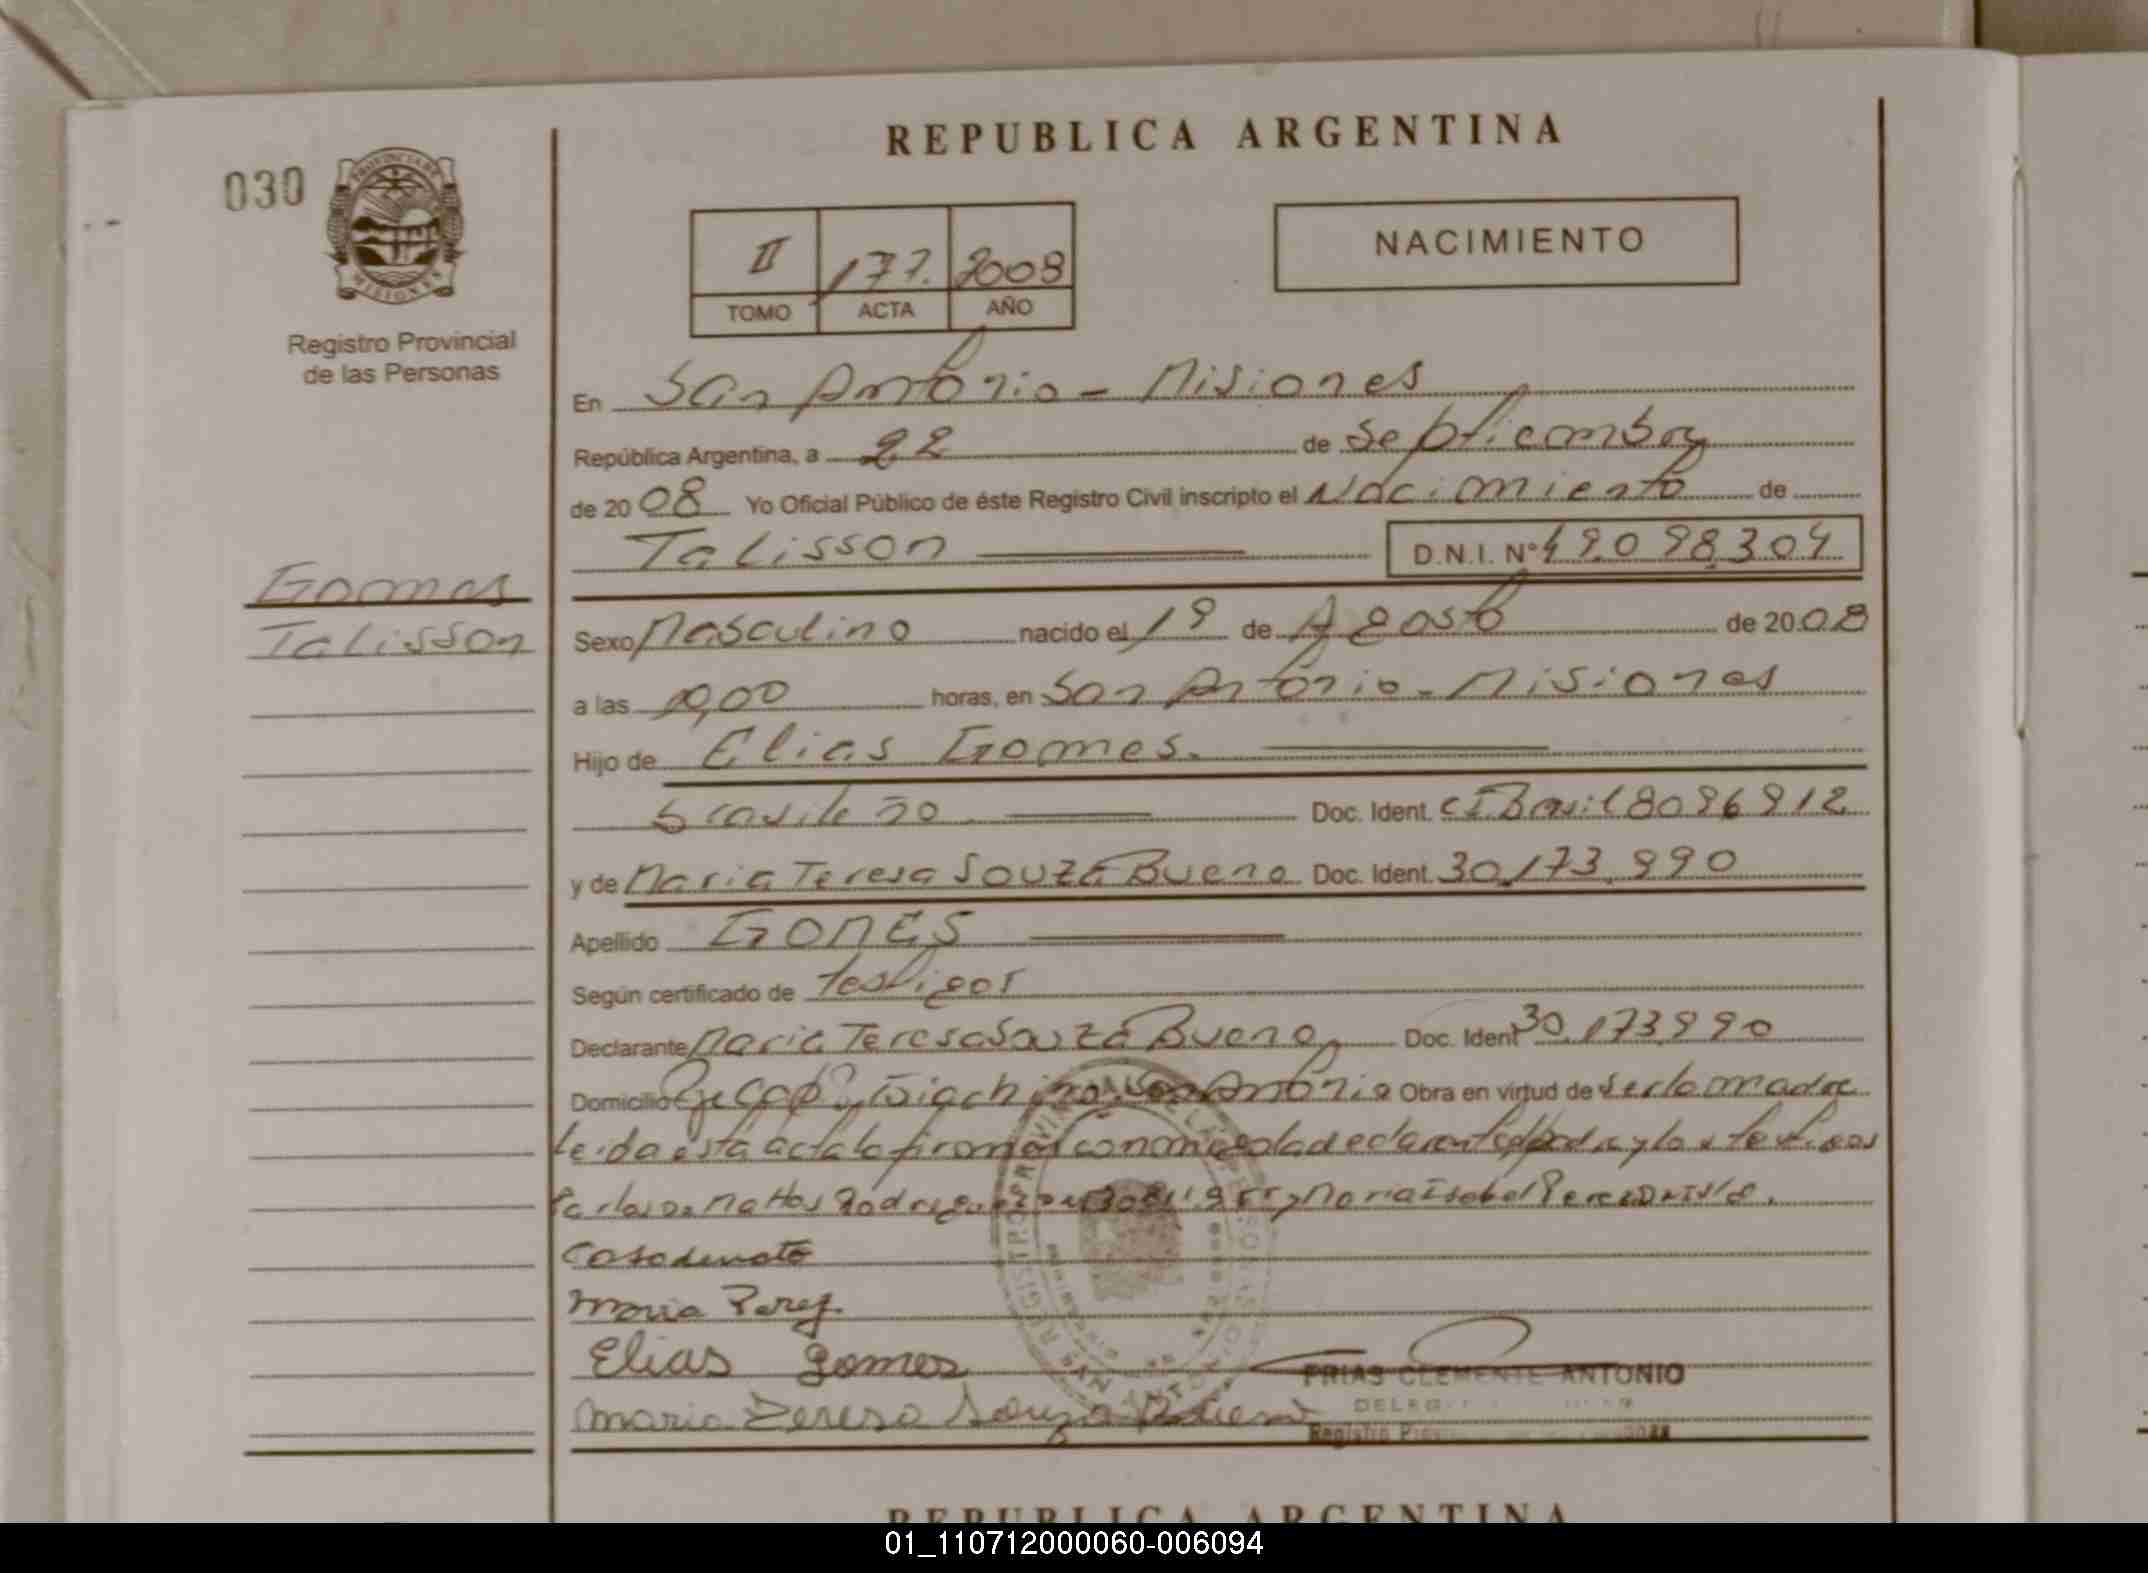 REPUBLICA ARGENTINA
030
PROVINCIA DE
MISIONES
Registro Provincial
de las Personas
II 177. 2008
TOMO ACTA AÑO
NACIMIENTO
En San Antonio - Misiones
República Argentina, a 22 de Septiembre
de 2008 Yo Oficial Público de éste Registro Civil inscripto el Nacimiento de
Talisson D.N.I. Nº 49.098.304
Gomes
Talisson
Sexo Masculino nacido el 1º de Agosto de 2008
a las 10,00 horas, en San Antonio - Misiones
Hijo de Elias Gomes.
brasileño Doc. Ident. CI Brasil 8096912
y de Maria Teresa Souza Bueno Doc. Ident. 30.173.990
Apellido GOMES
Según certificado de testigos
Declarante Maria Teresa Souza Bueno Doc. Ident 30.173.990
Domicilio San Antonio Obra en virtud de ser la madre
Leida esta acta la firman conmigo la declarante y los testigos
Rodriguez y Maria Isabel Perez
Maria Perez.
Elias gomes
Maria Teresa Souza Bueno
FRIAS CLEMENTE ANTONIO
REPUBLICA ARGENTINA
01_110712000060-006094